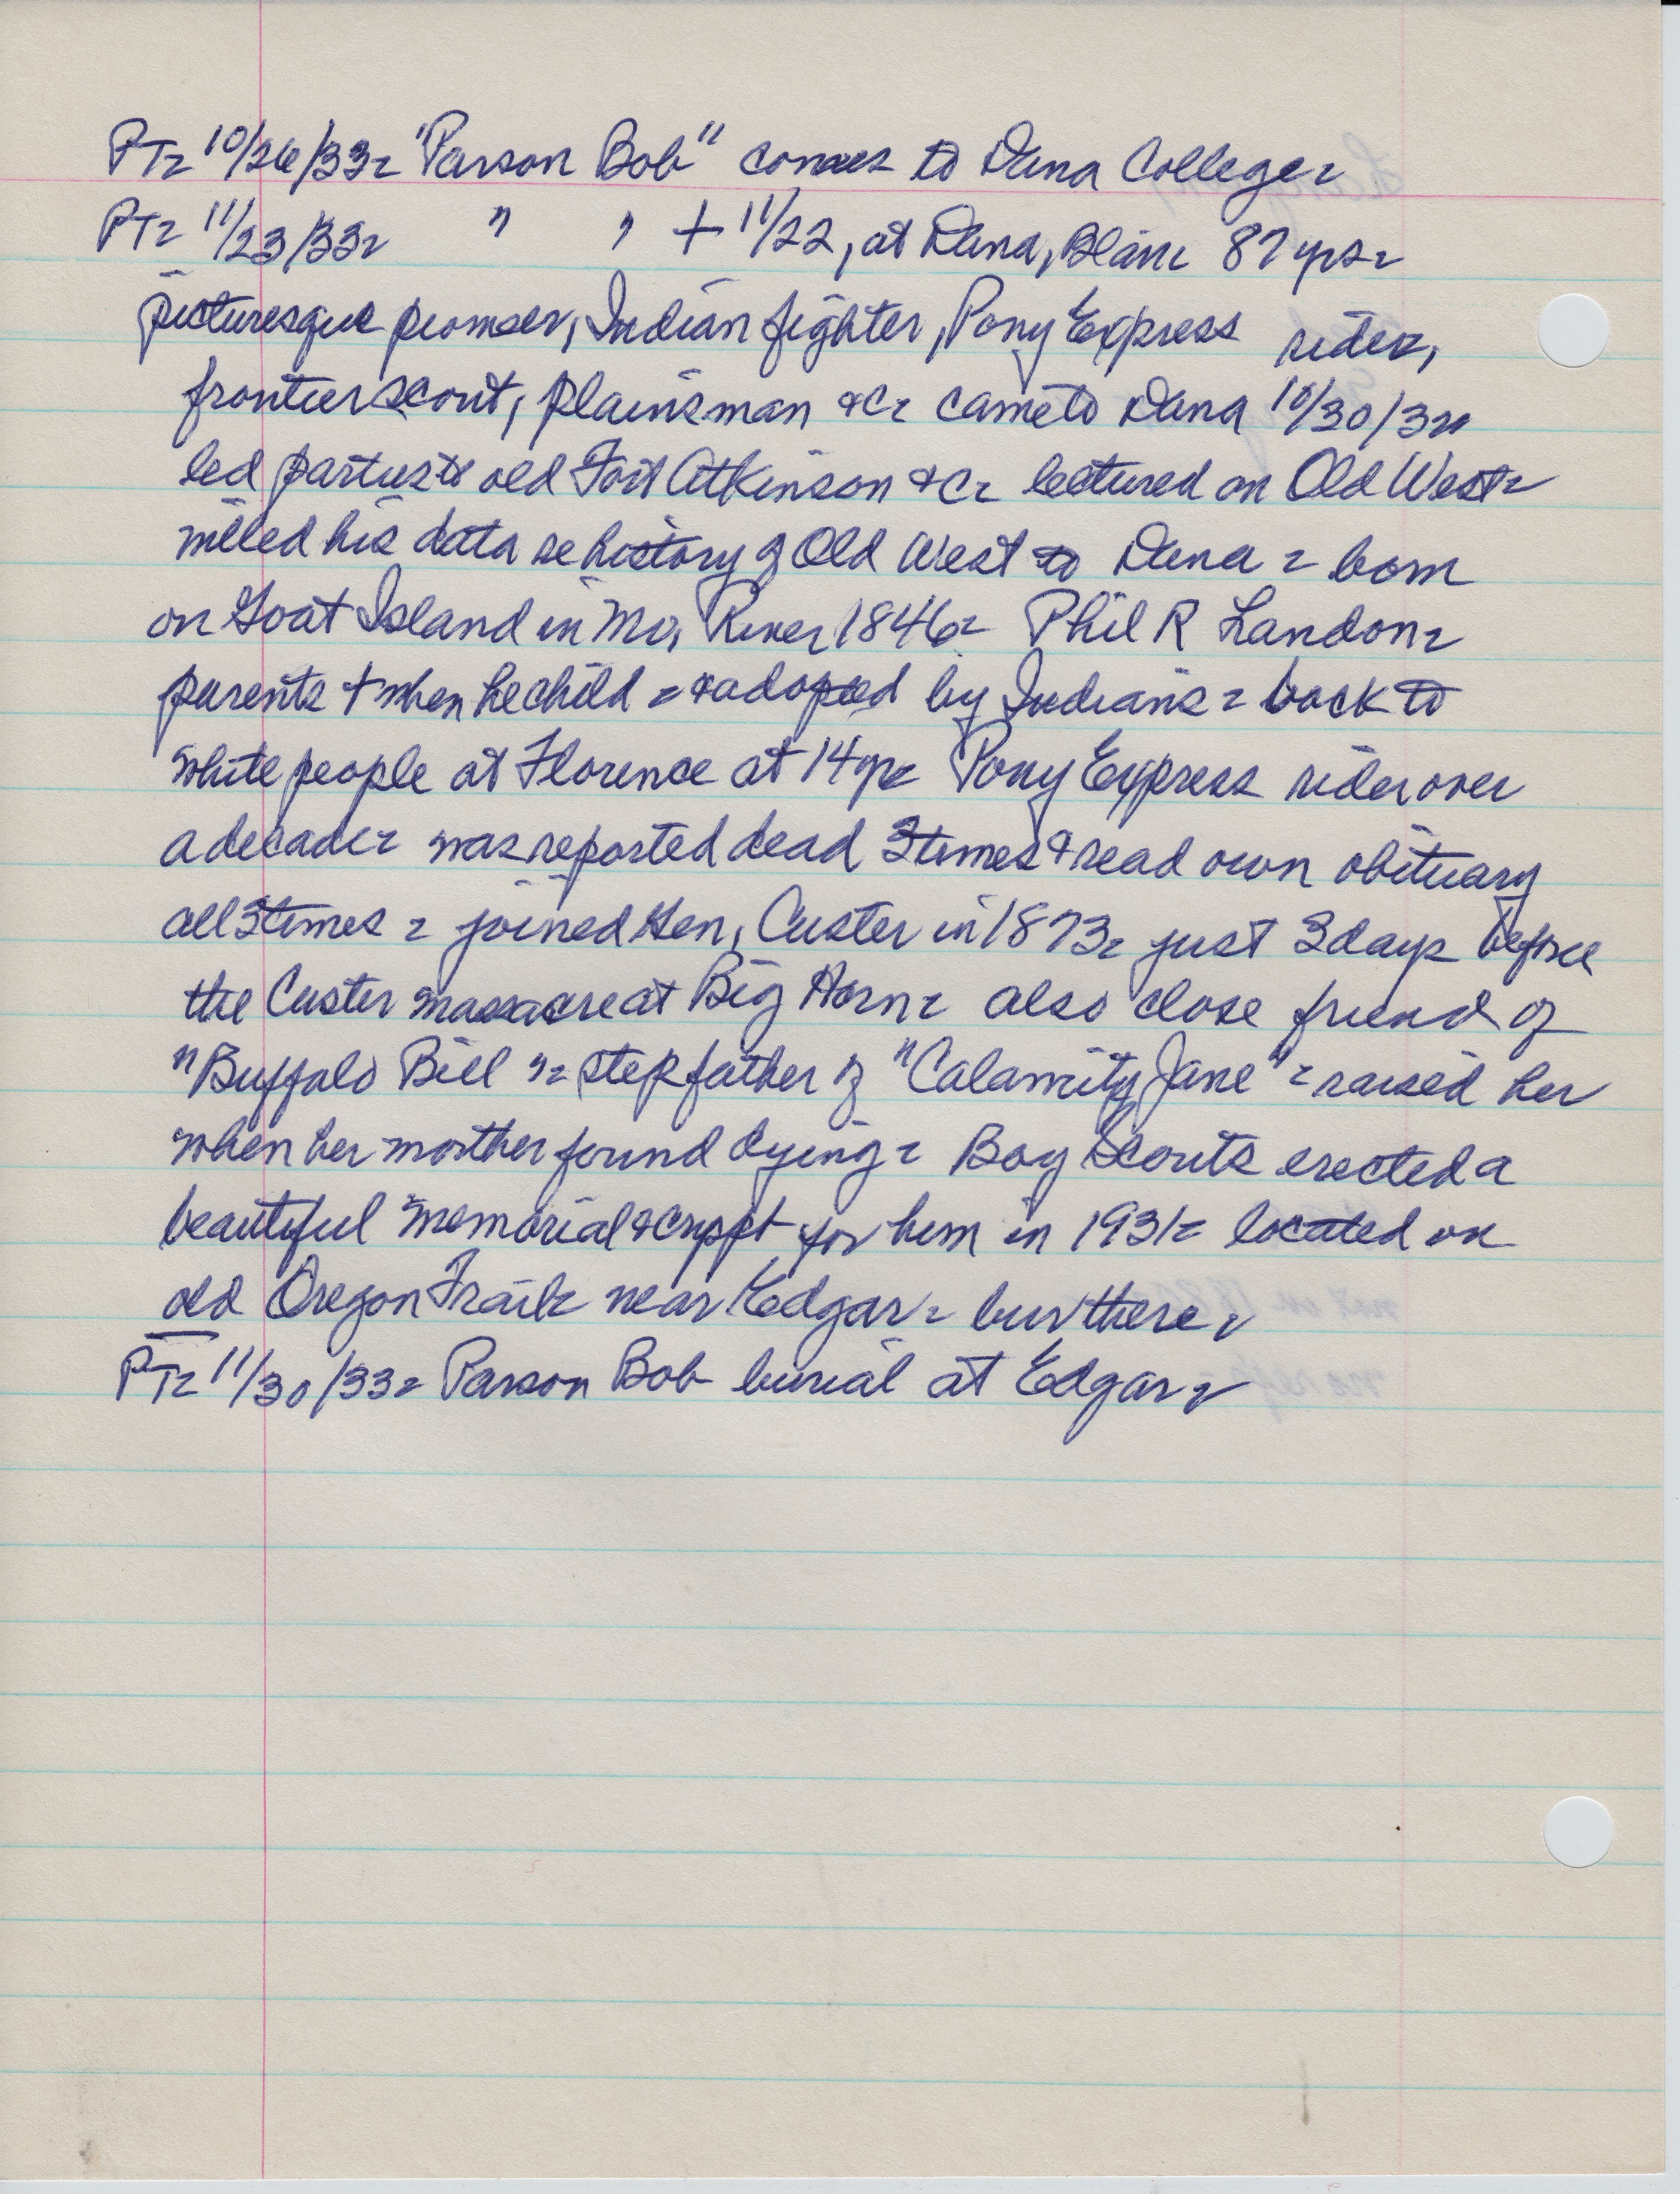 PT= 10/26/33= "Parson Bob" comes to Dana College=
PT= 11/23/33= " " + 11/22, at Dana, Blair= 87 yrs=
picturesque pioneer, Indian fighter, Pony Express rider,
frontier scout, plainsman &c= came to Dana 10/30/33=
led parties to old Fort Atkinson &c= lectured on Old West=
willed his data re history of Old West to Dana = born
on Goat Island in Mo, River 1846= Phil R Landon=
parents + when he child = & adopted by Indians = back to
white people at Florence at 14 yr= Pony Express rider over
a decade= was reported dead 3 times & read own obituary
all 3 times = joined Gen, Custer in 1873= just 3 days before
the Custer massacre at Big Horn= also close friend of
"Buffalo Bill"= step father of "Calamity Jane"= raised her
when her mother found dying= Boy Scouts erected a
beautiful memorial & crypt for him in 1931= located on
old Oregon Trail= near Edgar= bur there=
PT= 11/30/33= Parson Bob burial at Edgar=